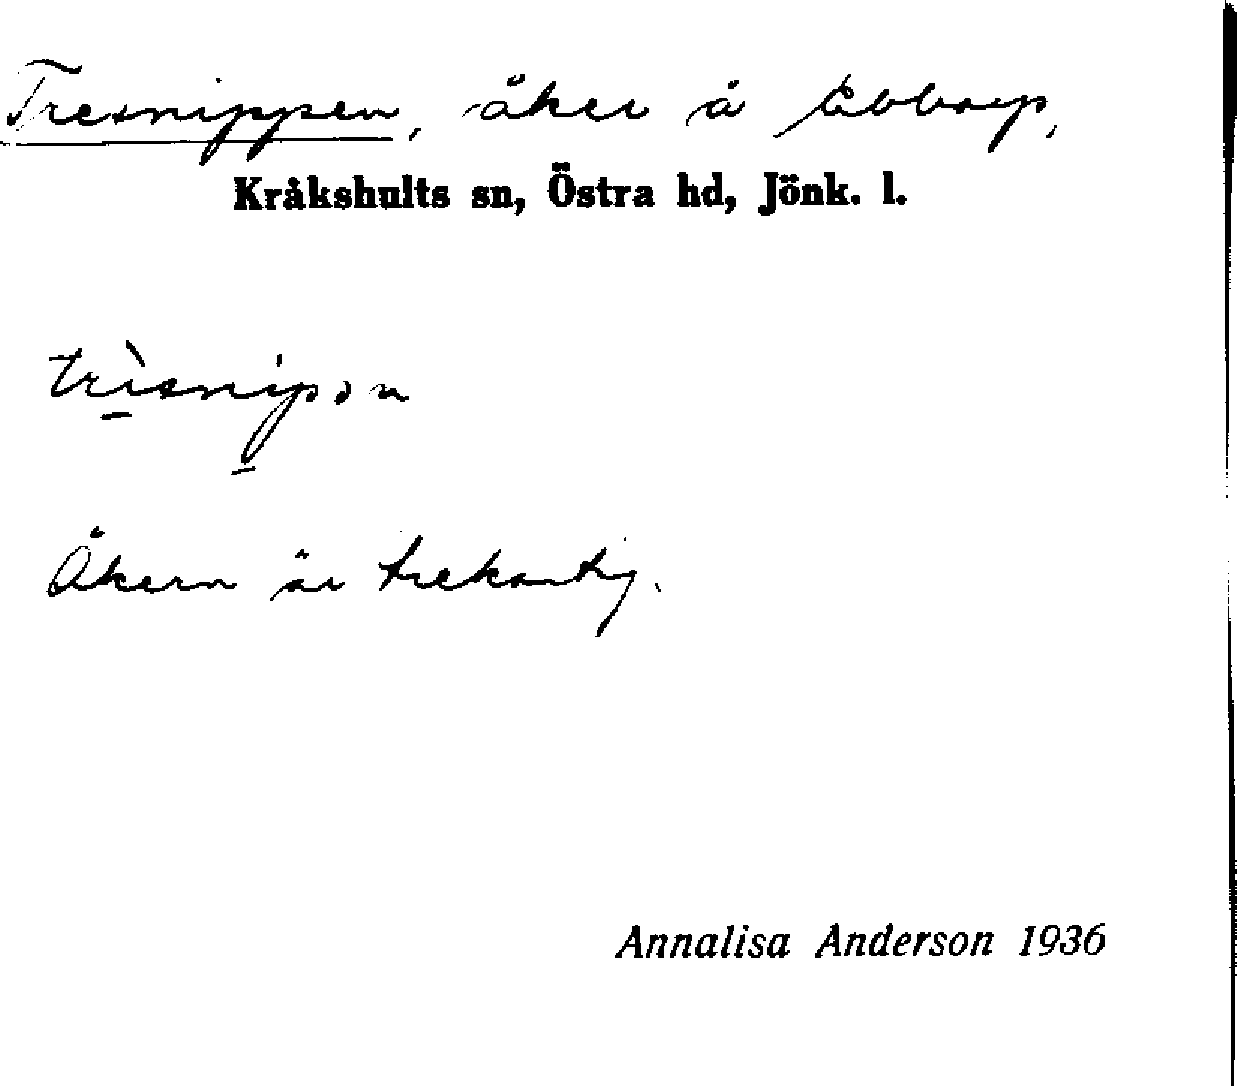 Tresnippen, åker å Ebbarp,
Kråkshults sn, Östra hd, Jönk. l.
trìsnipən
Åkern är trekantig.
Annalisa Anderson 1936